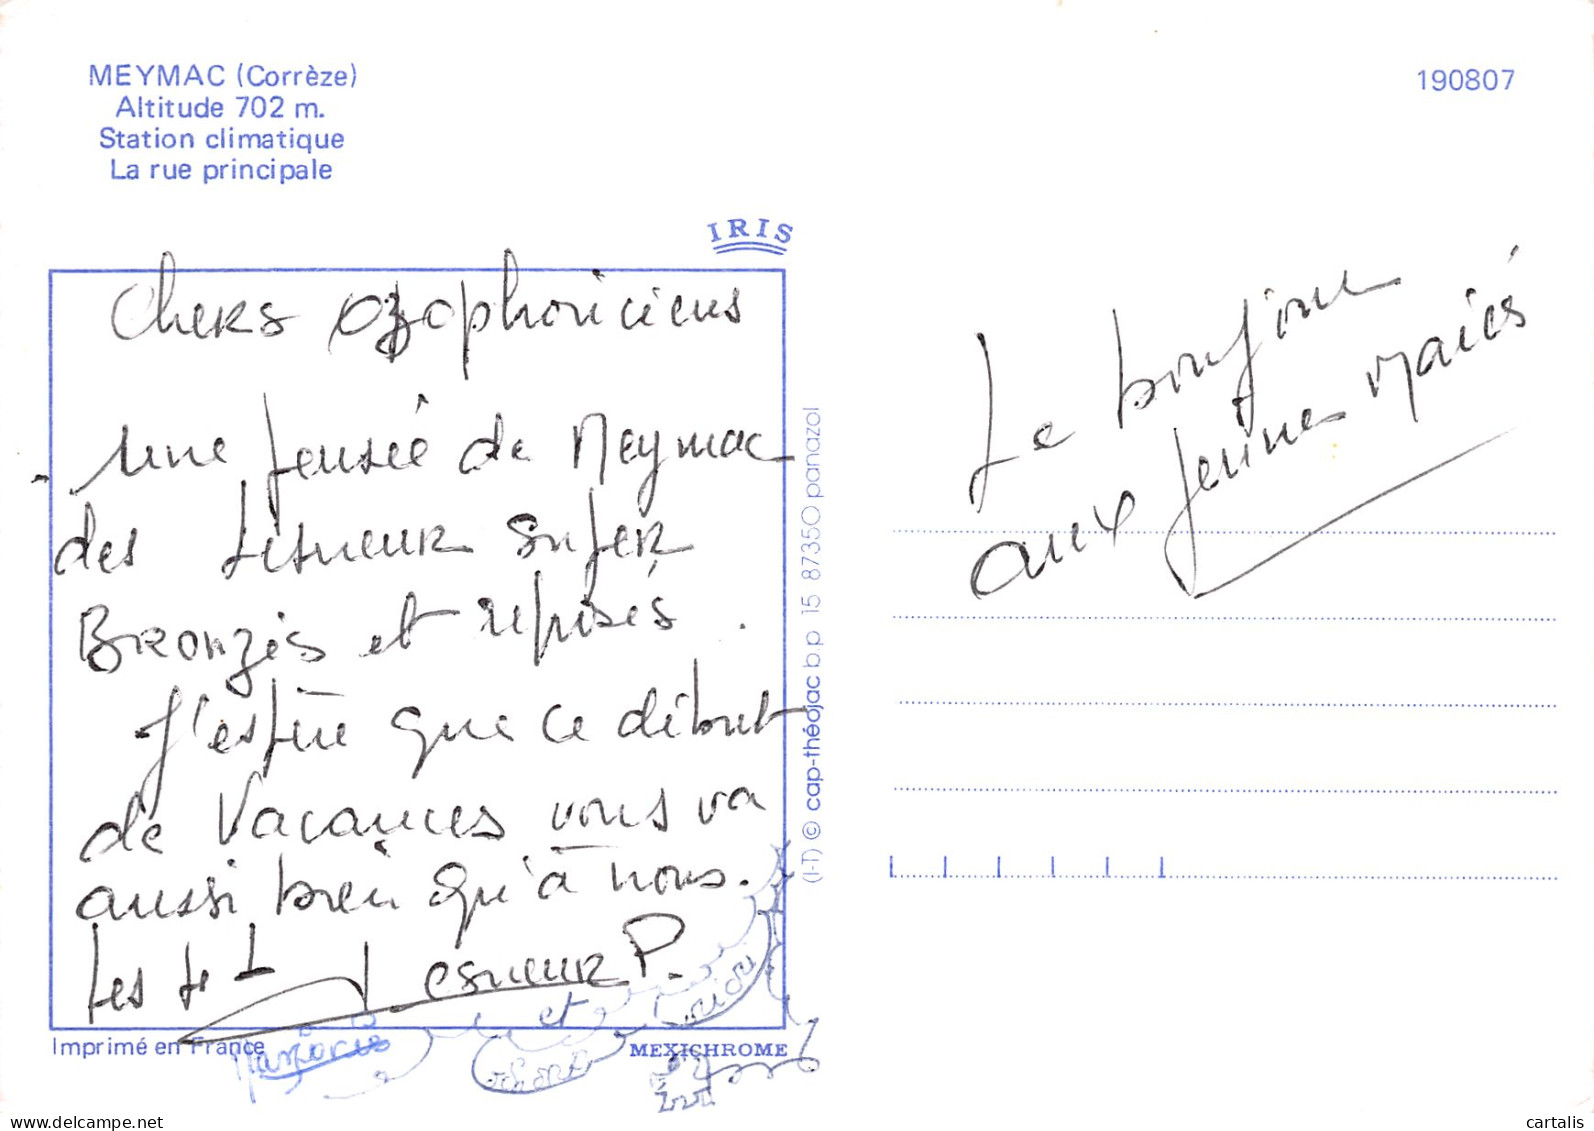 MEYMAC (Corrèze)
Altitude 702 m.
Station climatique
La rue principale
190807
IRIS
Chers
une pensée de Meymac
des Lesueur super
Bronzés et
J'espère que ce début
de vacances vous va
aussi bien qu'à nous.
Les
Lesueur P.
et
Le bonjour
aux jeunes mariés
(I-T) © cap-théojac b.p. 15 87350 panazol
Imprimé en France
MEXICHROME
delcampe.net
cartalis